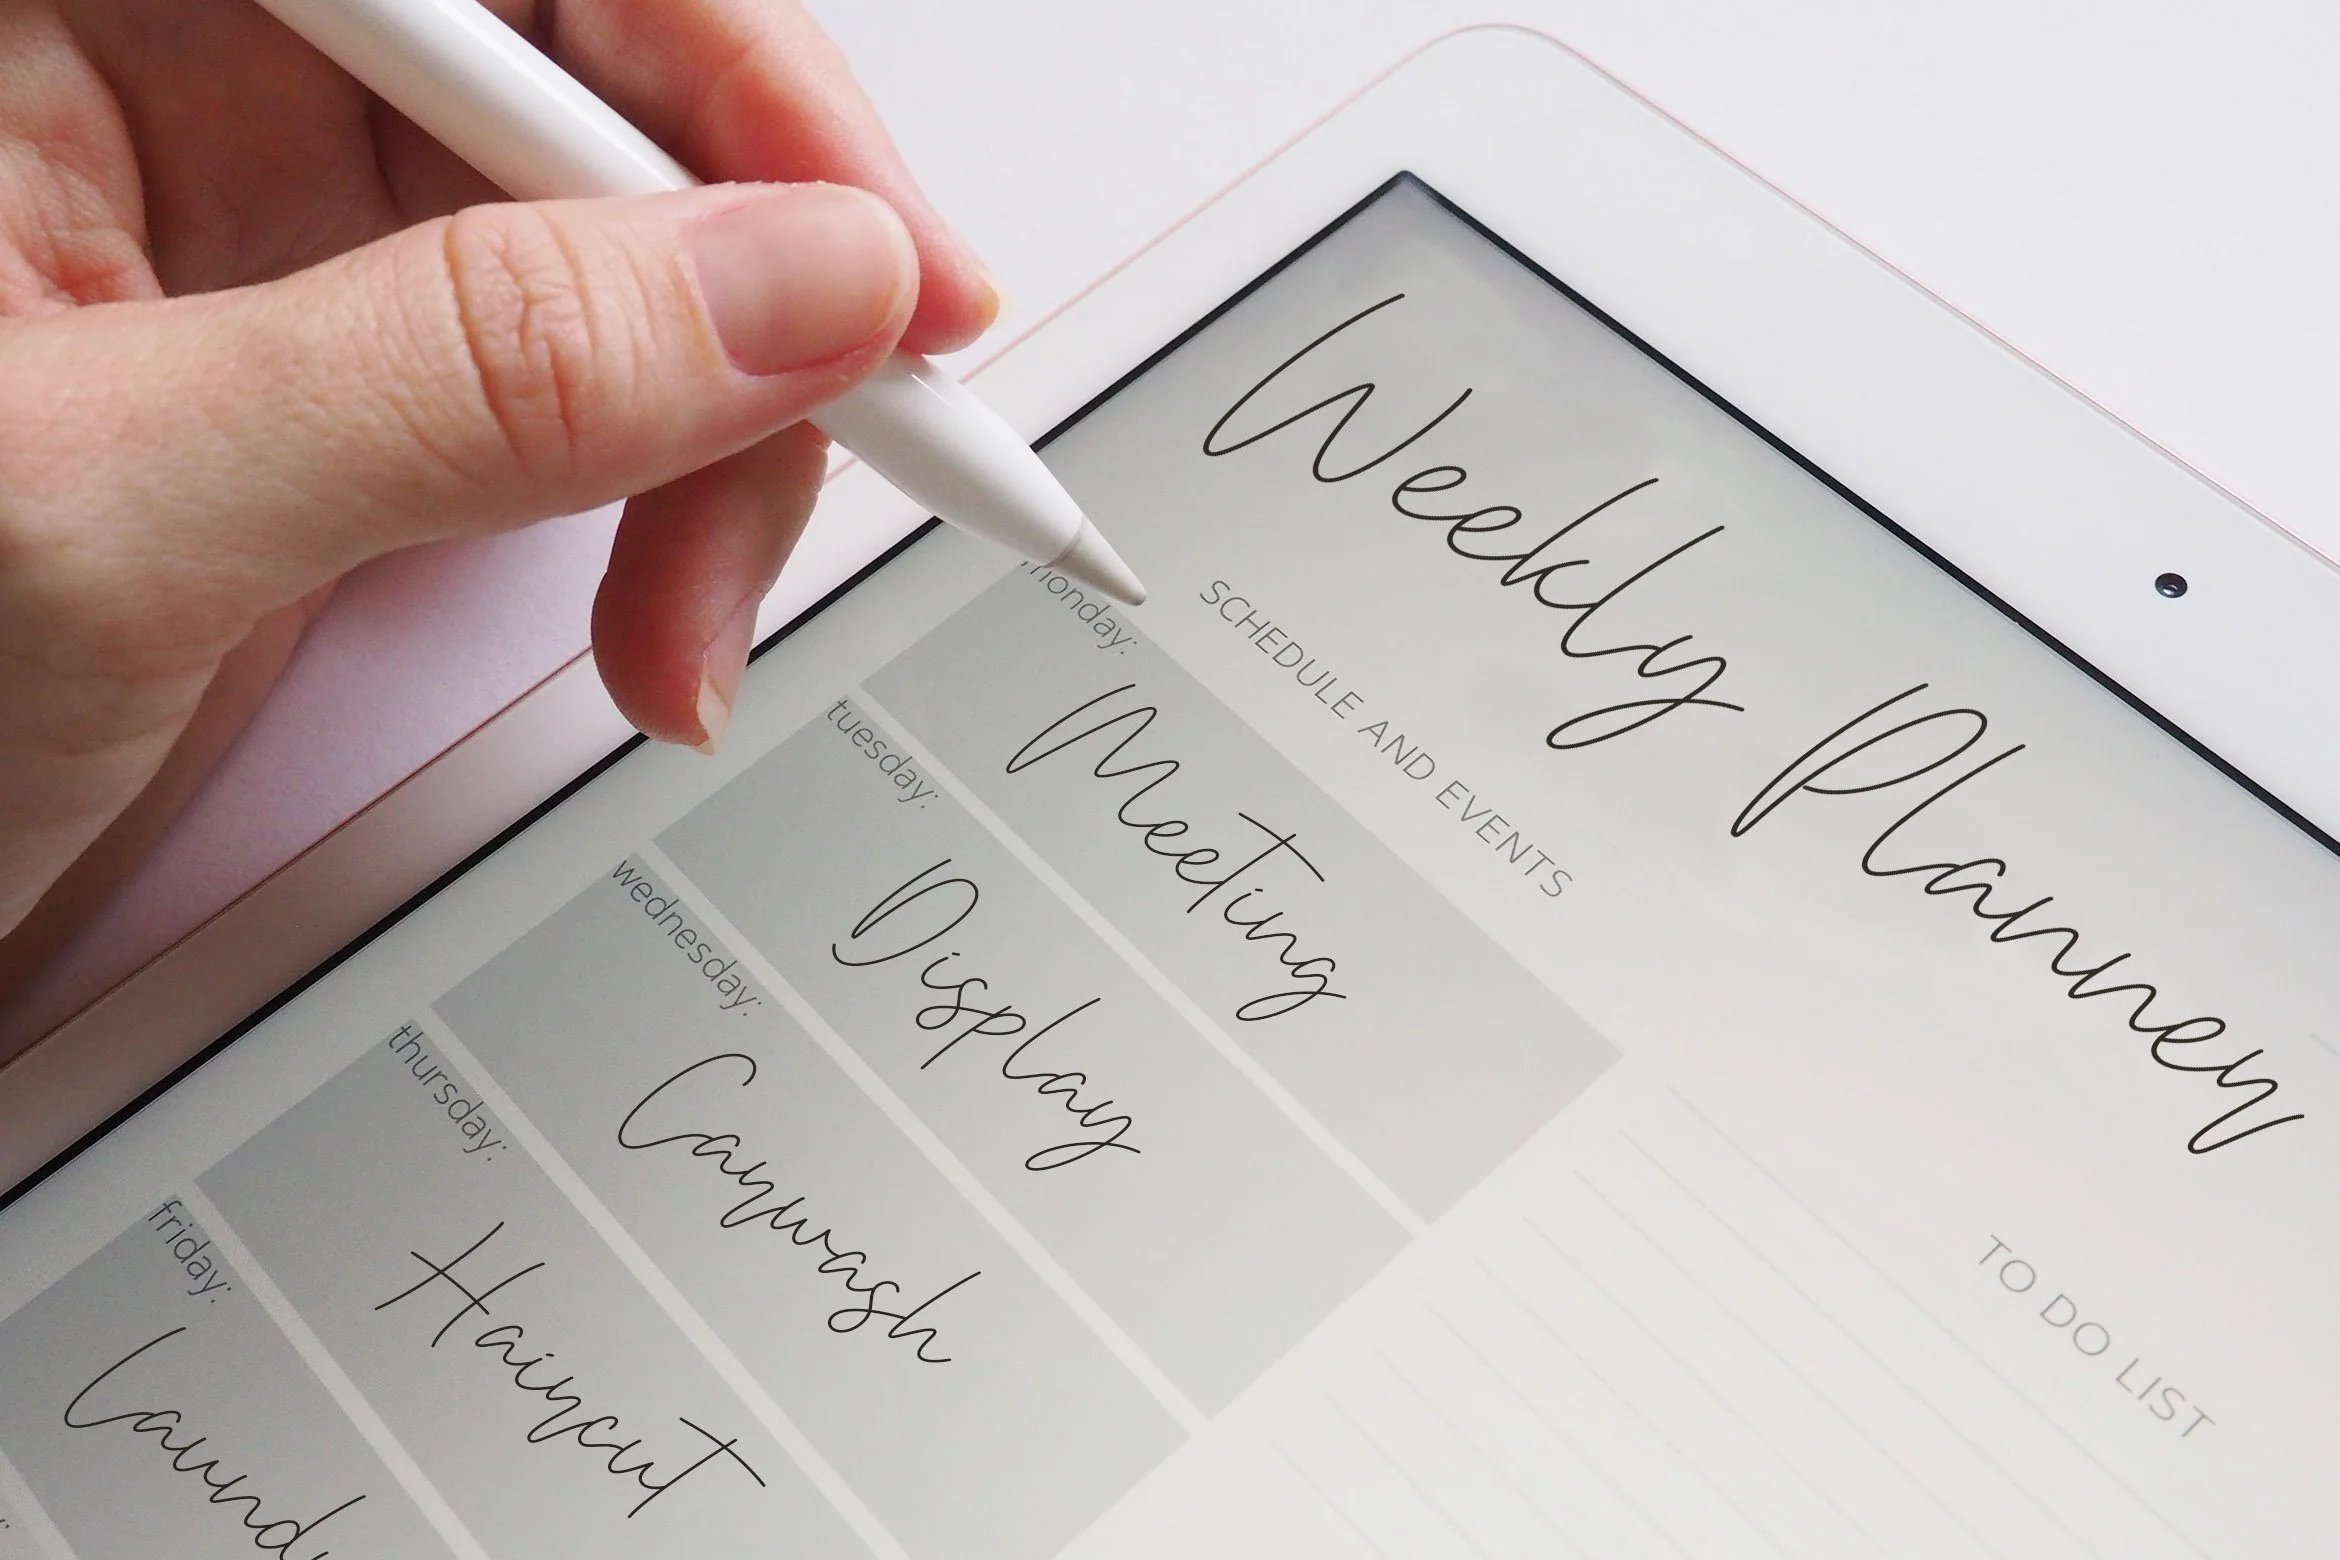 Weekly Planner
SCHEDULE AND EVENTS
monday:
Meeting
tuesday:
Display
wednesday:
Carwash
thursday:
Haircut
friday:
TO DO LIST